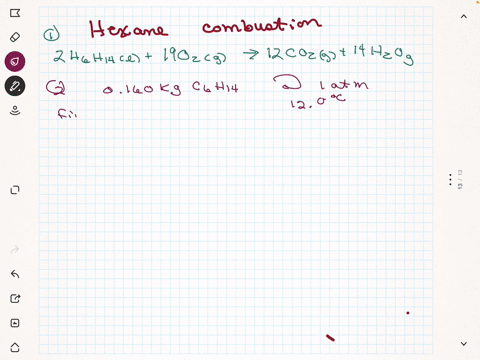 ① Hexane combustion
2H6H14(l) + 19O2(g) → 12CO2(g) + 14H2Og
② 0.160 Kg C6H14 @ 1 atm
12.0°C
Fi